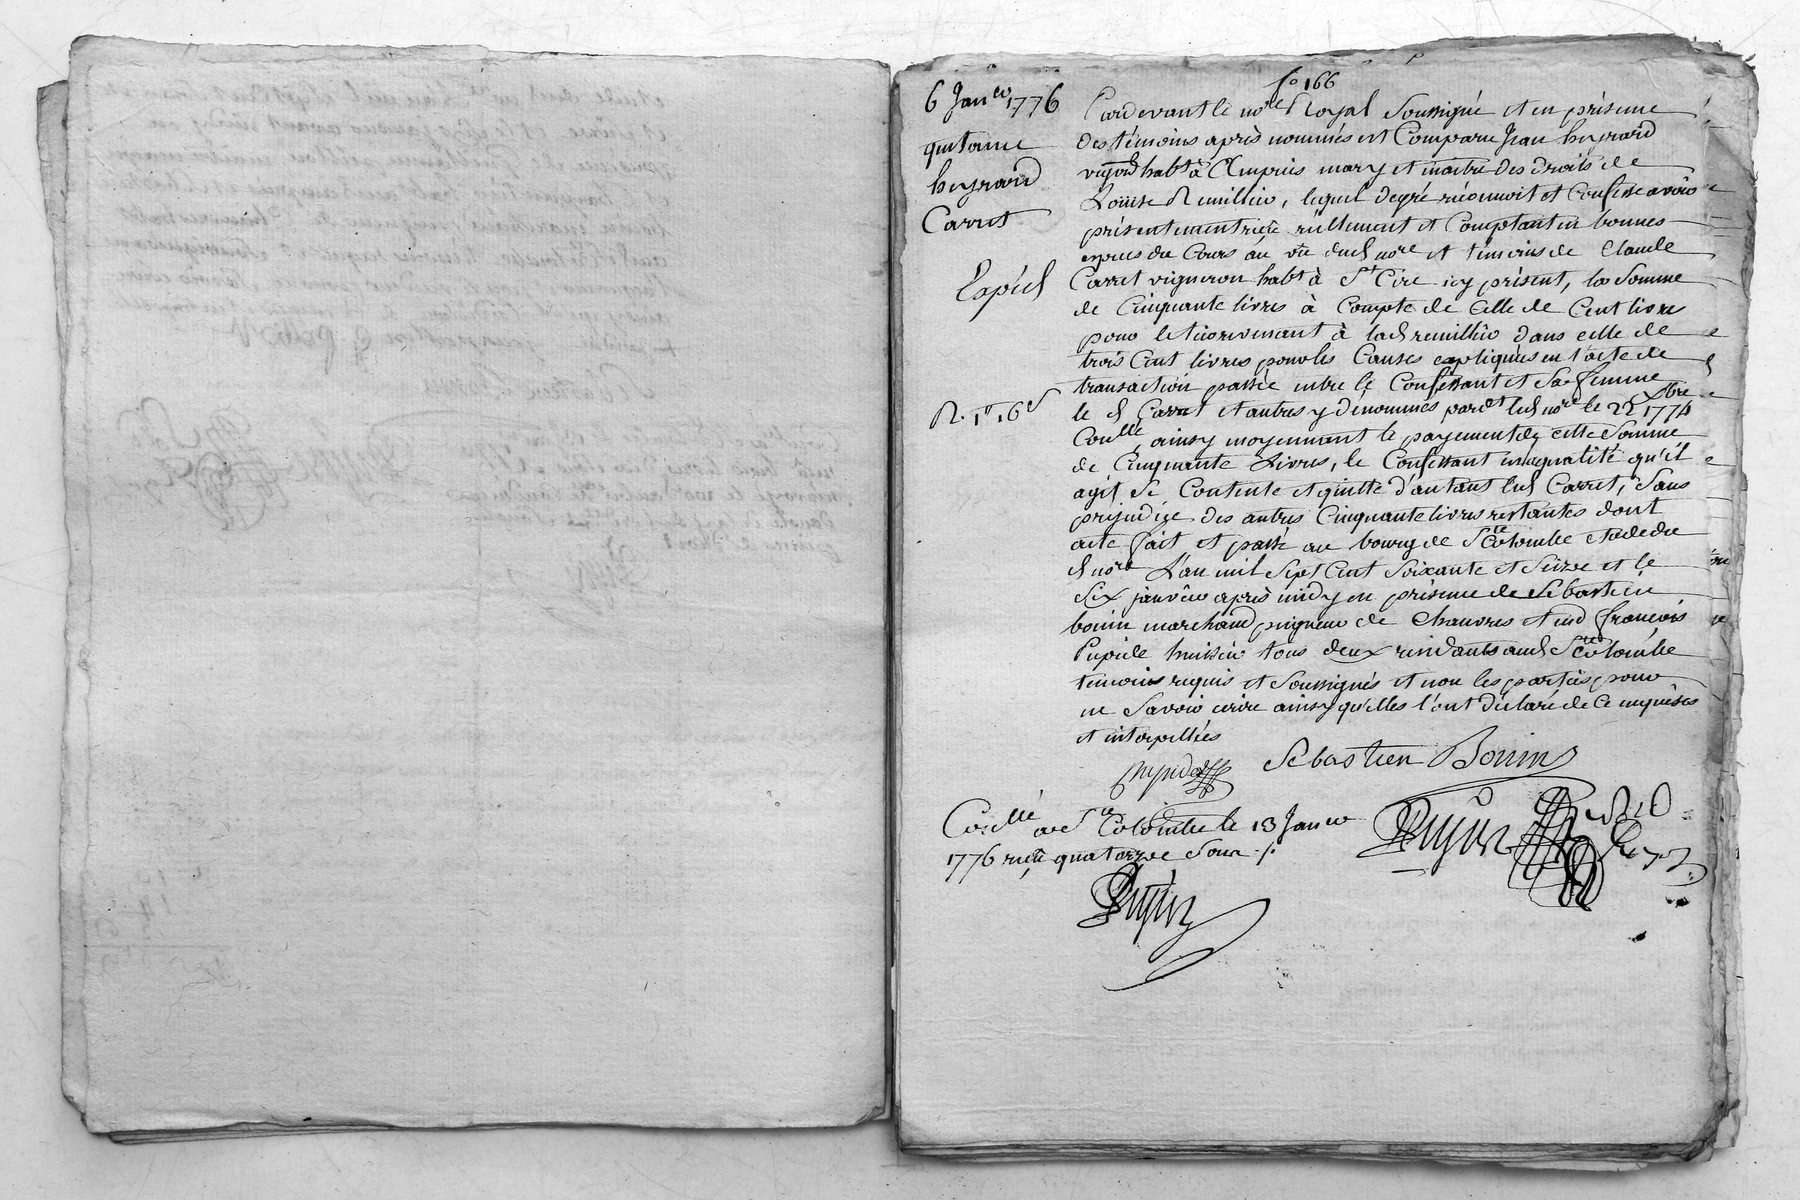 fo 166
6 Janer 1776
quittance
heyraud
Carret
Expéd
R. 1tt 16s
Pardevant le nore Royal Soussigné et en présence
des témoins après nommés est Comparu Jean heyraud
vigon habt à Ampuis mary et maitre des droits de
Louise Remillier, lequel degré réconnoit et Confesse avoir
présentement reçu réellement et Comptant en bonnes
especes du Cours au vu dud nore et témoins de Claude
Carret vigneron habt à St Cire icy présent, la Somme
de Cinquante livres à Compte de Celle de Cent livres
pour le tiers revenant à lad remillier dans celle de
trois Cent livres pour les Causes expliquées en l'acte de
transaction passée entre le Confessant et Sa femme
le d Carret et autres y dénommés pardt led nore le 22 Xbre 1774
Conllé, ainsy moyennant le payement de cette Somme
de Cinquante Livres, le Confessant en la qualité qu'il
agit Se Contente et quitte d'autant led Carret, Sans
prejudice des autres Cinquante livres restantes dont
acte fait et passé au bourg de Ste Colombe etude du
d nore L'an mil Sept Cent Soixante et Seize et le
Six janvier après midy en présence de Sébastien
bonin marchand peigneur de Chanvres et sr françois
Pupide huissier tous deux résidants aud Ste Colombe
temoins requis et Soussignés et non les parties pour
ne Savoir ecrire ainsy qu'elles l'ont déclaré de Ce enquises
et interpellées
Sebastien Bonin
Conllé a Ste Colombe le 13 Janer
1776 reçu quatorze Sous